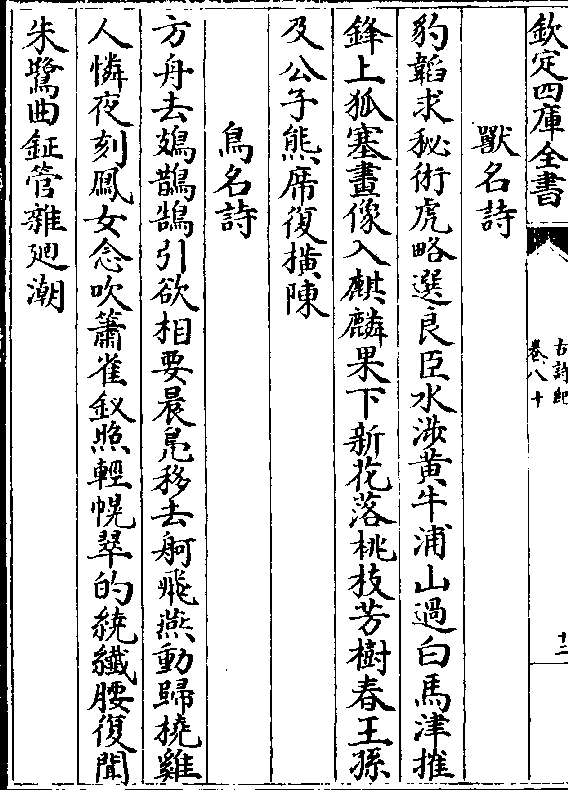 欽定四庫全書
古詩紀
卷八十
十二
獸名詩
豹韜求秘術虎略選良臣水涉黄牛浦山過白馬津推
鋒上狐塞畫像入麒麟果下新花落桃枝芳樹春王孫
及公子熊席復横陳
鳥名詩
方舟去鳷鵲鵠引欲相要晨鳧移去舸飛燕動歸橈雞
人憐夜刻鳳女念吹簫雀釵照輕幌翠的繞纖腰復聞
朱鷺曲鉦管雜廻潮